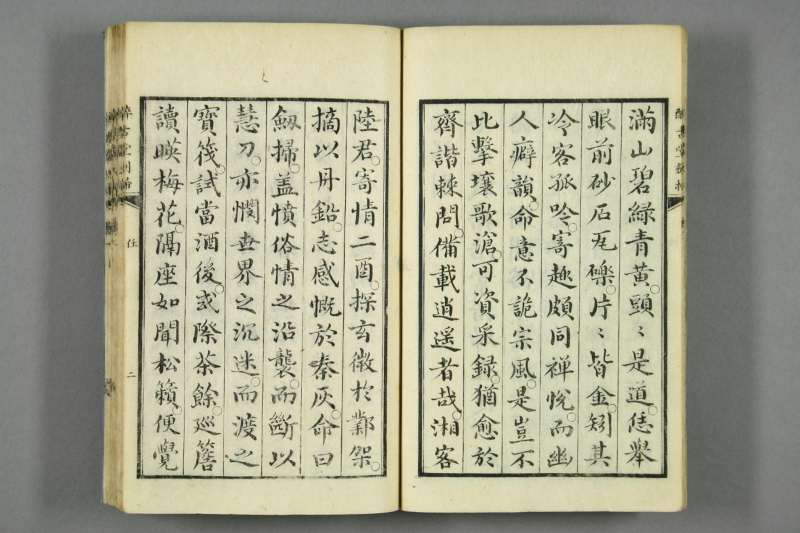 滿山碧綠青黃頭〻是道恁舉
眼前砂石瓦礫片〻皆金矧其
冷客孤吟寄趣頗同禪悅而幽
人癖韻命意不詭宗風是豈不
比擊壤歌滄可資采録猶愈於
齊諧棘問備載逍遥者哉湘客
陸君寄情二酉探玄徵於鄴架
摘以丹鉛志感慨於秦灰命曰
劒掃盖憤俗情之沿襲而斷以
慧刀亦憫世界之沉迷而渡之
寶筏試當酒後或際茶餘巡簷
讀暎梅花隔座如聞松籟便覺
任
二